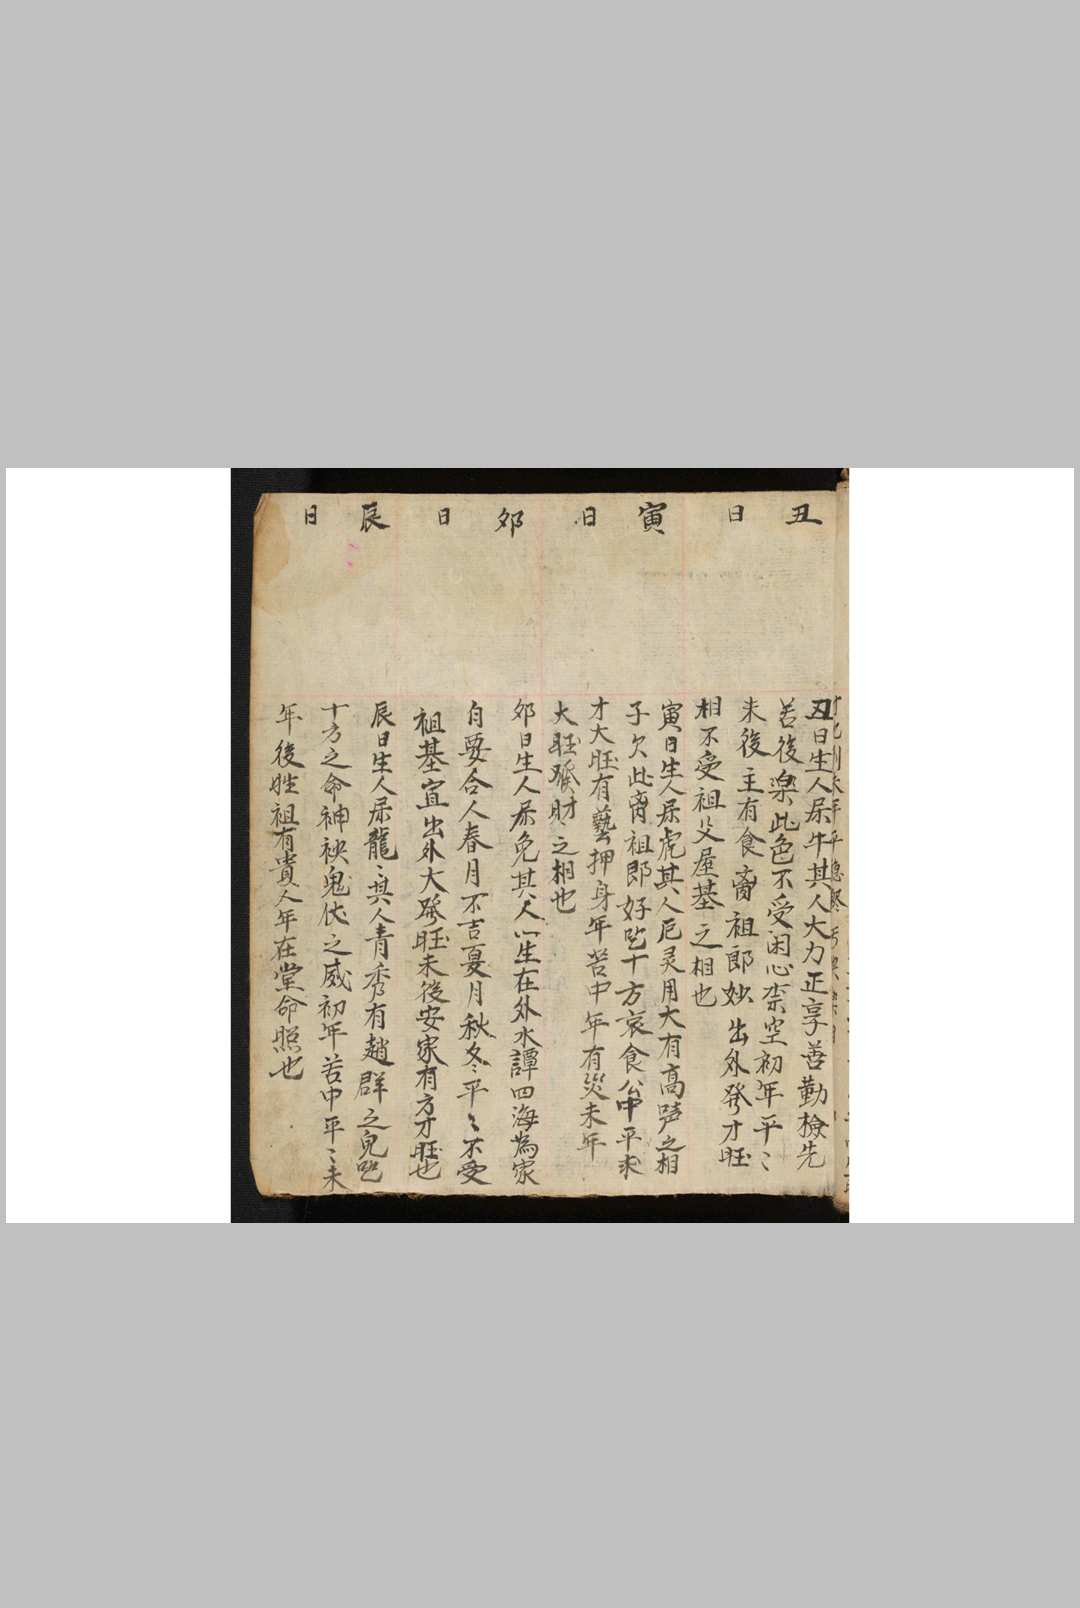 丑日
寅日
夘日
辰日
丑日生人屎牛其人大力正享善勤檢先
苦後楽此色不受闲心柰空初年平〻
未後主有食啇祖郎妙出外発才旺
相不受祖父屋基之相也
寅日生人屎虎其人卮灵用大有高声之相
子欠此啇祖郎好吃十方衣食公中平求
才大旺有藝押身年苦中年有災未年
大旺發財之相也
夘日生人屎免其人心生在外水譚四海為家
自要合人春月不吉夏月秋冬平〻不受
祖基宜出外大發旺未後安家有方才旺也
辰日生人屎龍〻其人青秀有趙群之皃吃
十方之命神䄃鬼伏之威初年苦中平〻未
年後姓祖有貴人年在堂命照也